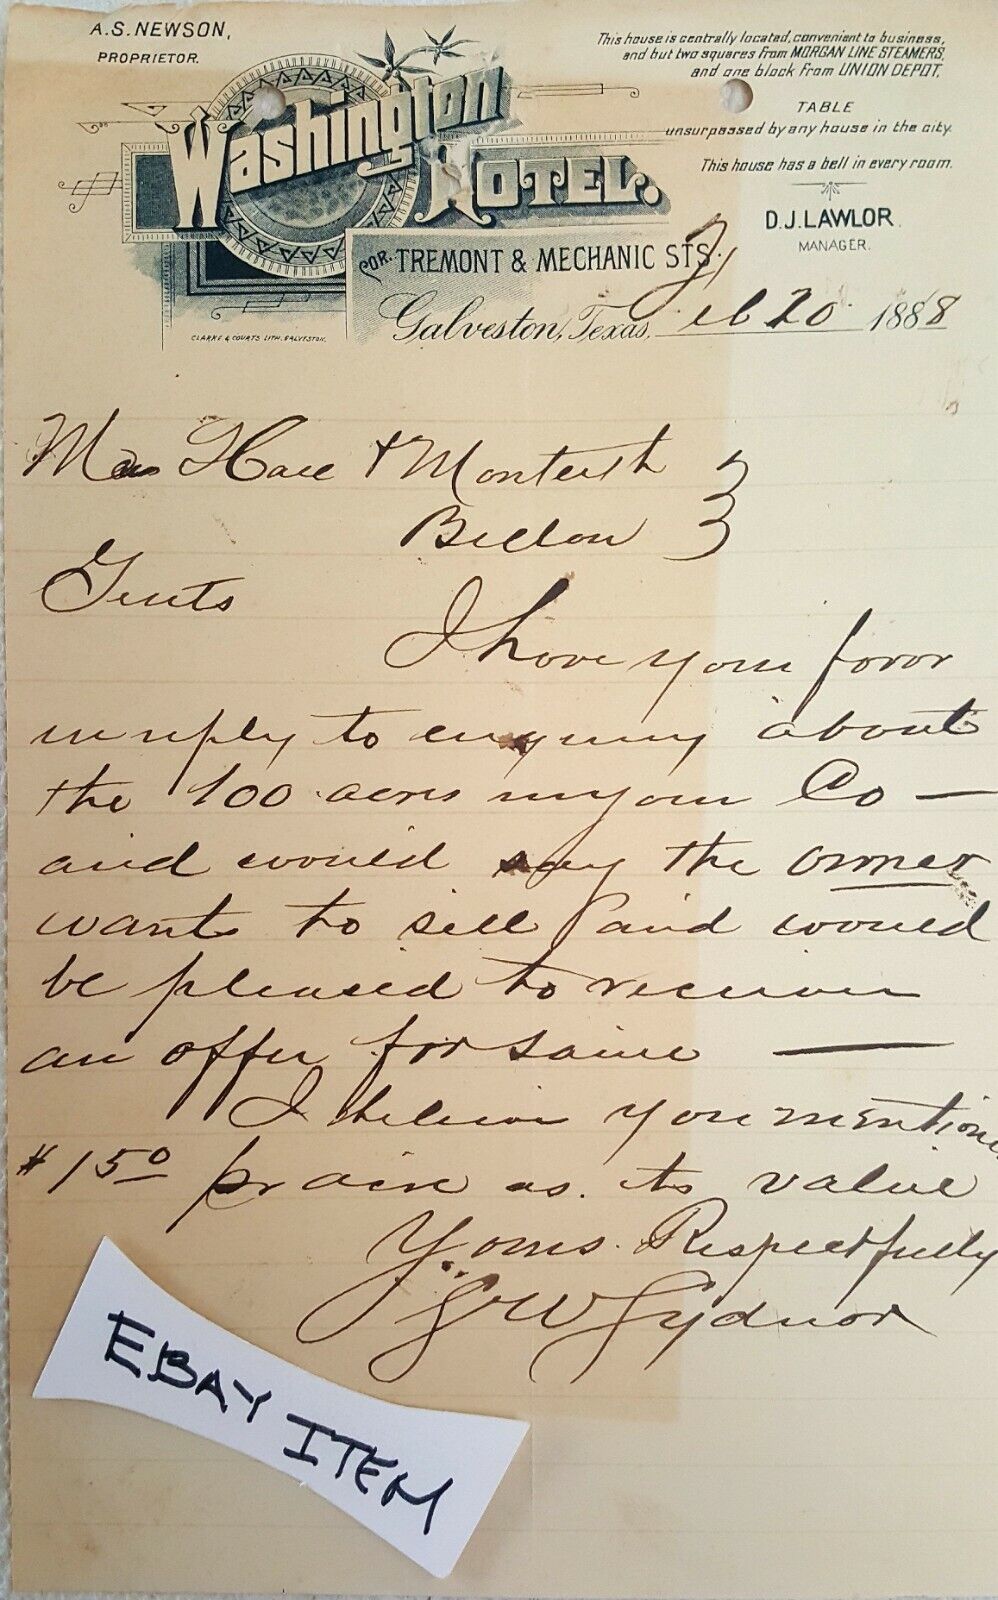 A.S. NEWSON,
PROPRIETOR.
Washington
HOTEL.
COR. TREMONT & MECHANIC STS.
This house is centrally located, convenient to business,
and but two squares from MORGAN LINE STEAMERS,
and one block from UNION DEPOT.
TABLE
unsurpassed by any house in the city.
This house has a bell in every room.
D.J. LAWLOR
MANAGER.
Galveston, Texas, Feb 20 1888
CLARKE & COURTS LITH. GALVESTON.
Hare & Monteith
Belton
Gents
I have your favor
in reply to enquiry about
the 100 acres in your Co —
and would say the owner
wants to sell and would
be pleased to receive
an offer for same —
I believe you mention
$1.50 pr acre as its value
Yours Respectfully
J W Sydnor
EBAY
ITEM